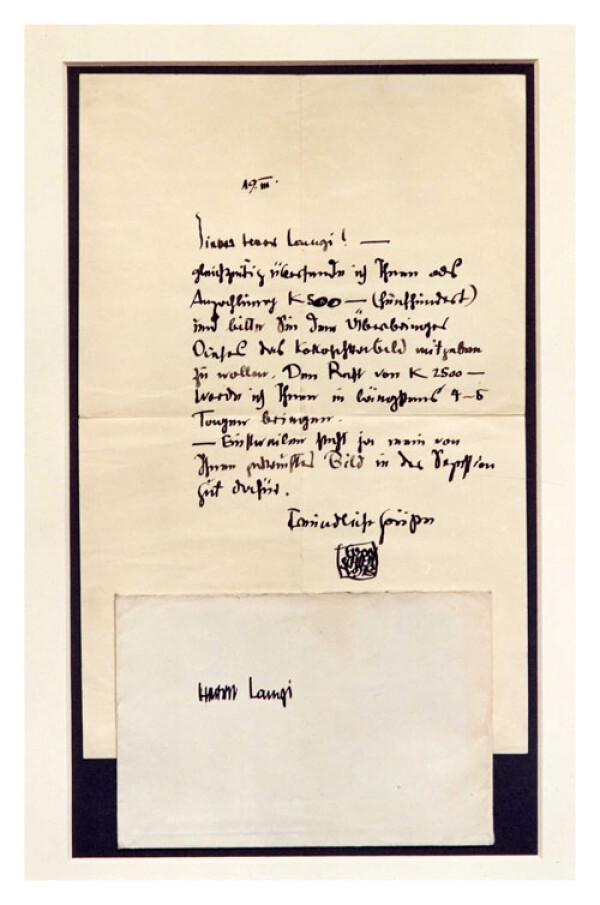 19. III.
Lieber Herr Lanyi! —
gleichzeitig übersende ich Ihnen als
Anzahlung K 500 — (fünfhundert)
und bitte Sie dem Überbringer
dieses das Kokoschkabild mitgeben
zu wollen. Den Rest von K 2500 —
werde ich Ihnen in längstens 4–5
Tagen bringen.
— Einstweilen steht ja mein von
Ihnen Bild in der Sezession
gut dafür.
Freundliche Grüße
Herrn Lanyi